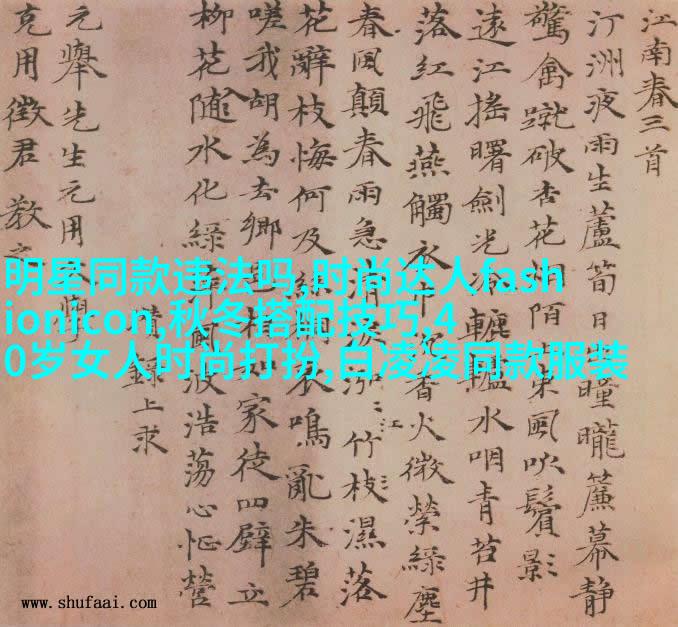 江南春三首
汀洲夜雨生蘆筍日出曈曨簾幕靜
驚禽蹴破杏花烟陌上東風吹鬢影
遠江搖曙劍光冷轆轤水咽青苔井
落紅飛燕觸衣巾沉香火微縈綠塵
春風顛春雨急清淚泓泓江竹枝濕落
花辭枝悔何及絲桐哀鳴亂朱碧
嗟我胡為去鄉邑相如家徒四壁立
柳花隨水化綠萍風波浩蕩心怔營
錄上求
元舉先生元用
克用徵君教之
明星同款违法吗,时尚达人fash
ionicon,秋冬搭配技巧,4
0岁女人时尚打扮,白凌凌同款服装
www.shufaai.com